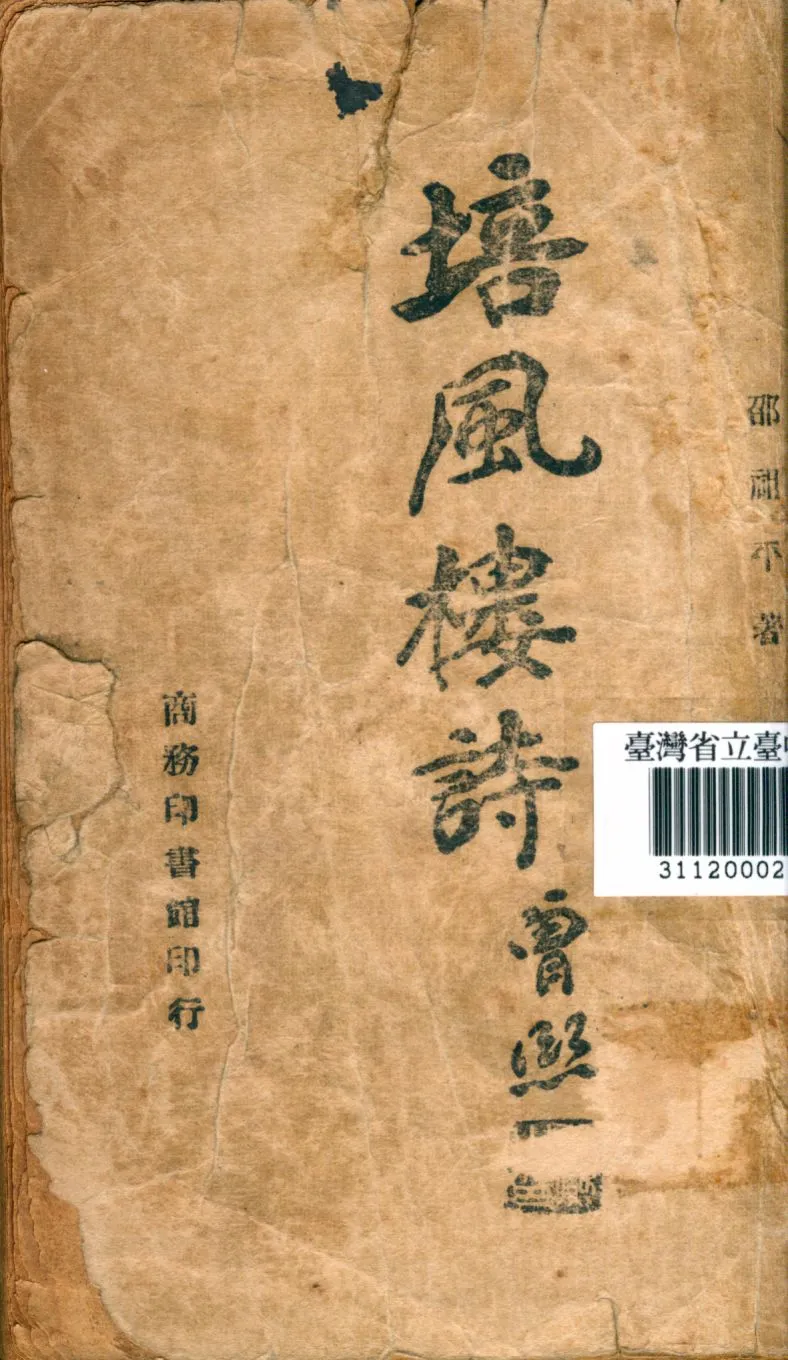 邵祖平著
培風樓詩
曾熙
商務印書館印行
臺灣省立臺
31120002